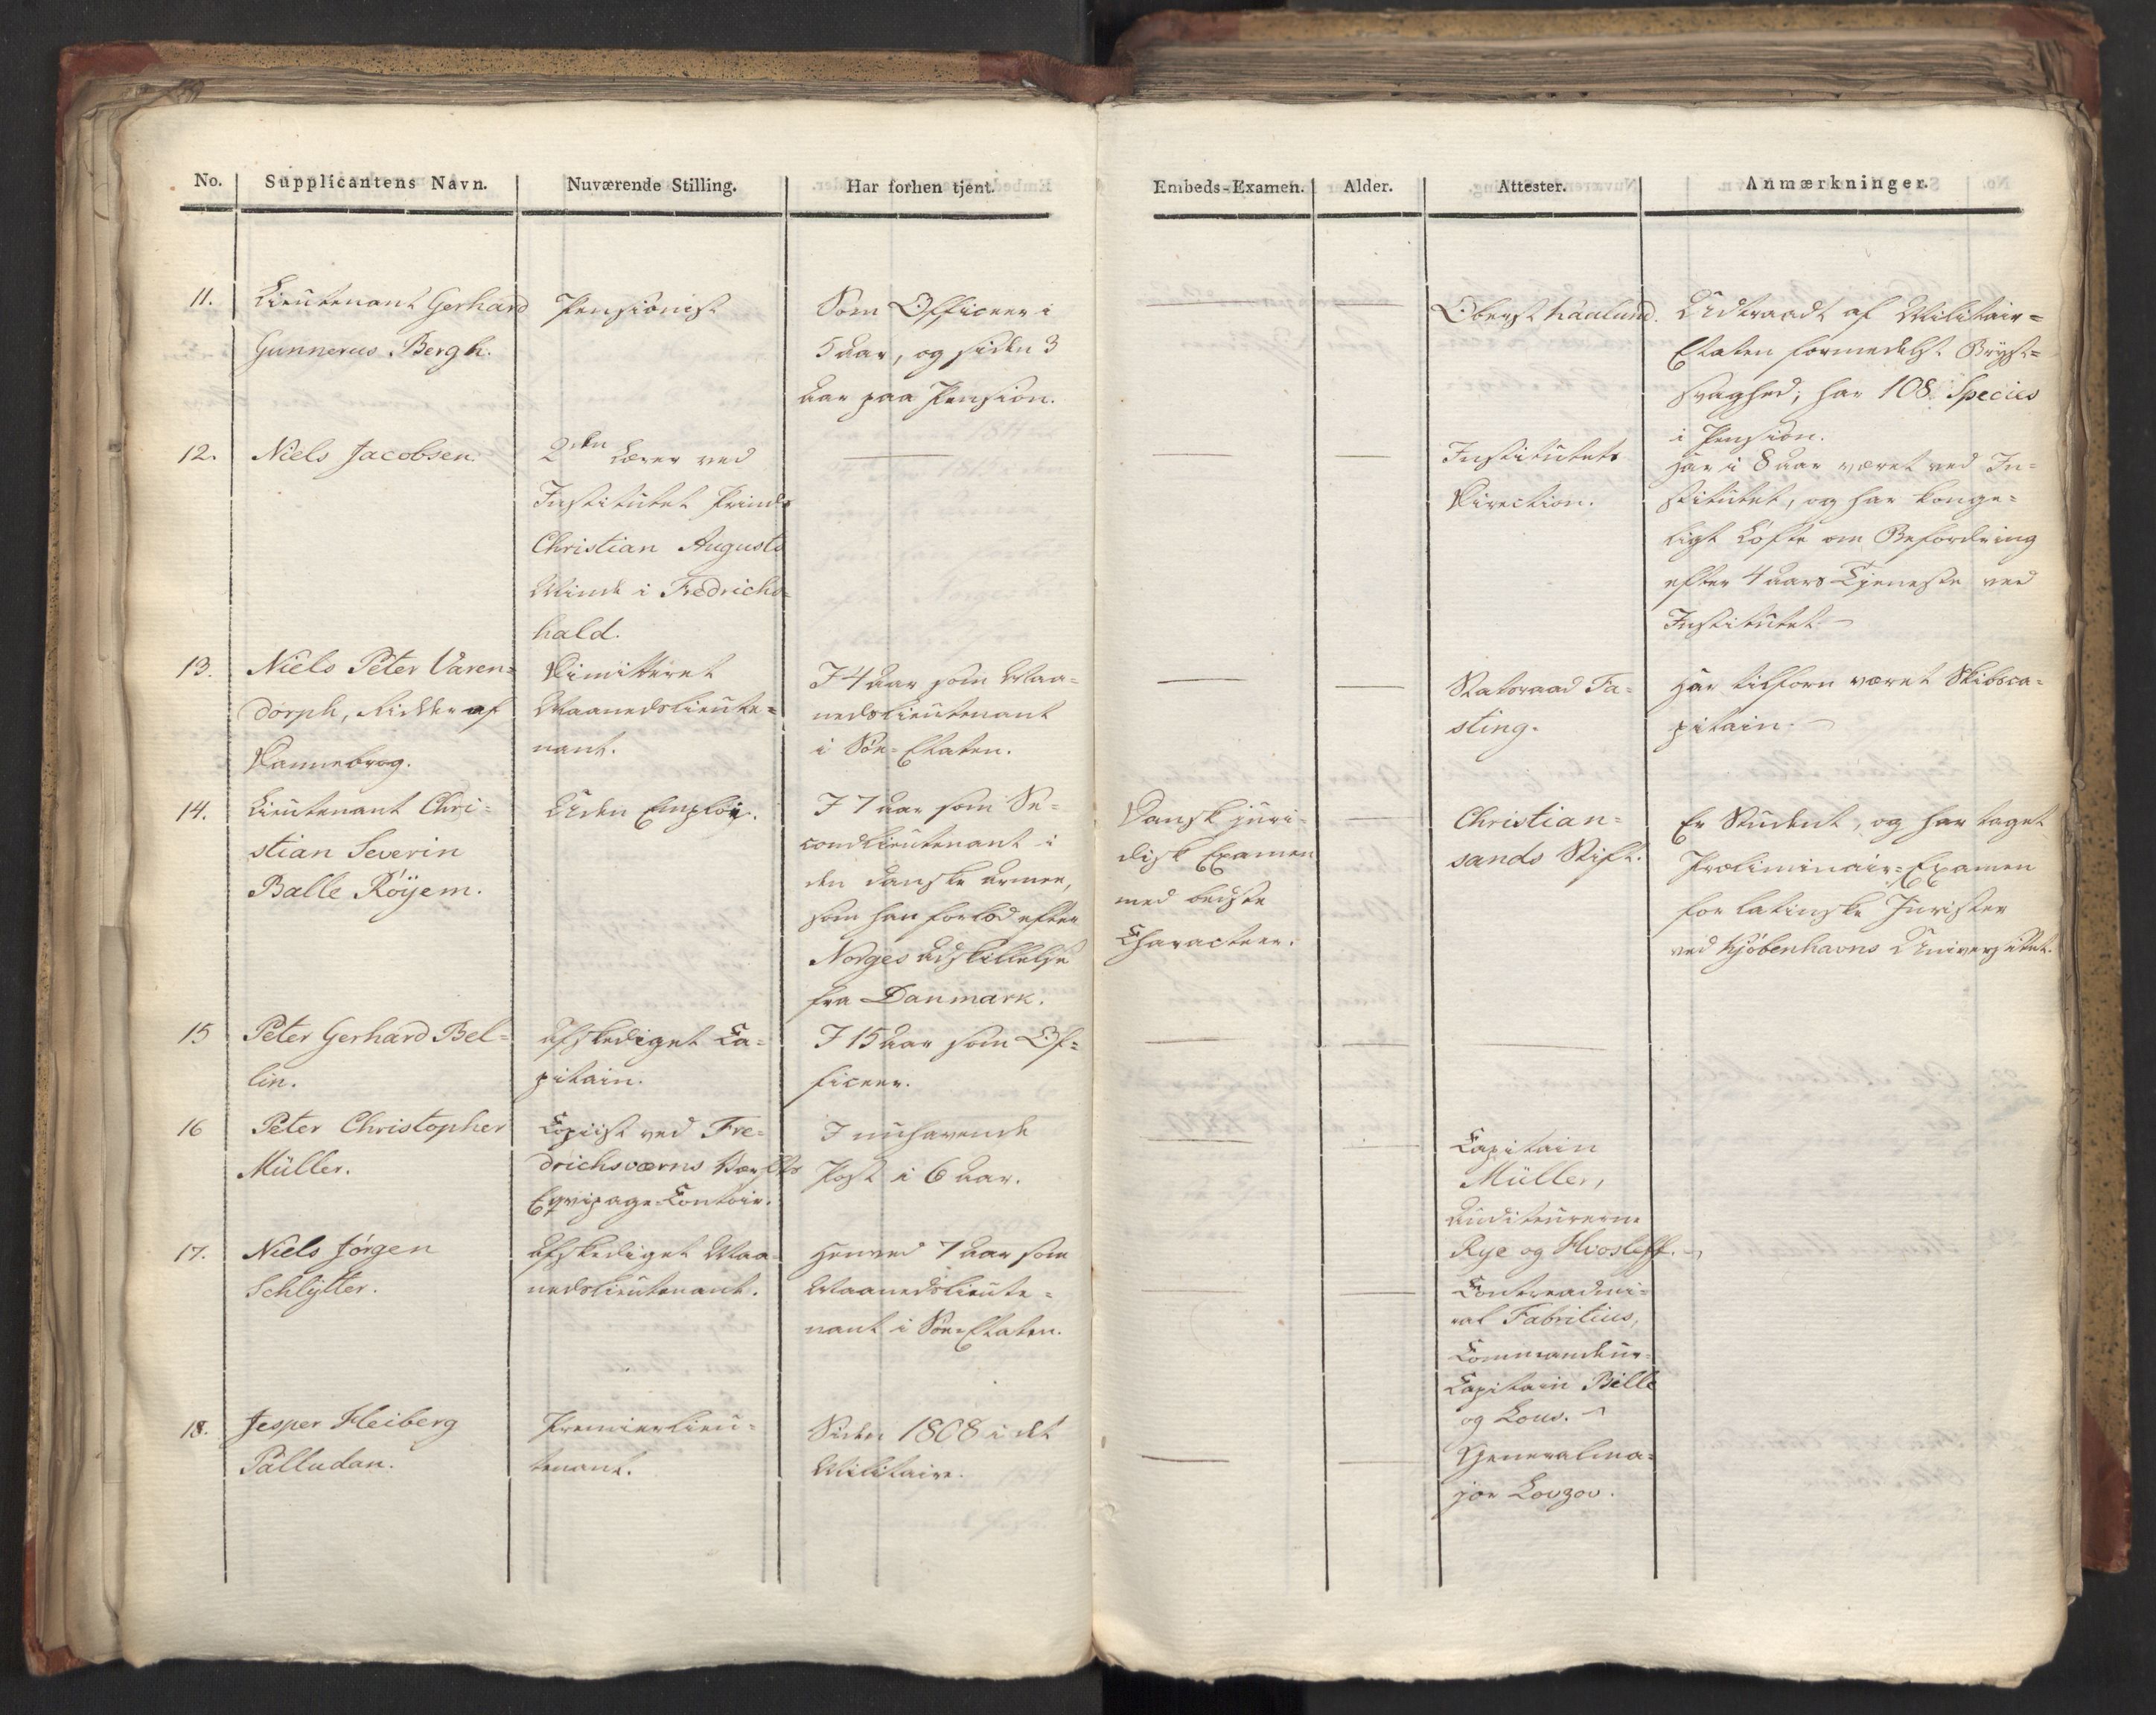 No. Supplicantens Navn. Nuværende Stilling. Har forhen tjent. Embeds-Examen. Alder. Attester. Anmærkninger.
11.
Lieutenant Gerhard
Gunnerus Bergh.
Pensionist
Som Officeer i
5 Aar, og siden 3
Aar paa Pension.
Oberst Haalund.
Udtraadt af Militair-
Etaten formedelst Bryst-
svaghed; har 108 Species
i Pension.
12.
Niels Jacobsen.
2den Lærer ved
Institutet Prinds
Christian Augusts
Minde i Fredrichs-
hald.
Institutets
Direction.
Har i 8 Aar været ved In-
stitutet, og har konge-
ligt Løfte om Befordring
efter 4 Aars Tjeneste ved
Institutet.
13.
Niels Peter Varen-
dorph, Ridder af
Dannebrog.
Dimitteret
Maanedslieute-
nant.
I 4 Aar som Maa-
nedslieutenant
i Søe-Etaten.
Statsraad Fa-
sting.
Har tilforn været Skibsca-
pitain.
14.
Lieutenant Chri-
stian Severin
Balle Röyem.
Uden Emploi.
I 7 Aar som Se-
condlieutenant i
den danske Armee,
som han forlod efter
Norges Adskillelse
fra Danmark.
Dansk juri-
disk Examen
med bedste
Characteer.
Christian-
sands Stift.
Er Student, og har taget
Præliminair-Examen
for latinske Jurister
ved Kjøbenhavns Universitet.
15
Peter Gerhard Bel-
lin.
Afskediget Ca-
pitain.
I 15 Aar som Of-
ficeer.
16
Peter Christopher
Müller.
Copiist ved Fre-
drichsværns Værfts
Eqvipage-Contoir.
I nuhavende
Post i 6 Aar.
Capitain
Müller,
Auditeurerne
Rye og Hvosleff.
17.
Niels Jörgen
Schlytter.
Afskediget Maa-
nedslieutenant.
Henved 7 Aar som
Maanedslieute-
nant i Søe-Etaten.
Contreadmi-
ral Fabritius,
Commandeur-
Capitain Bille
og Lous.
18.
Jesper Heiberg
Palludan.
Premierlieu-
tenant.
Siden 1808 i det
Militaire.
Generalma-
jor Lovzov.